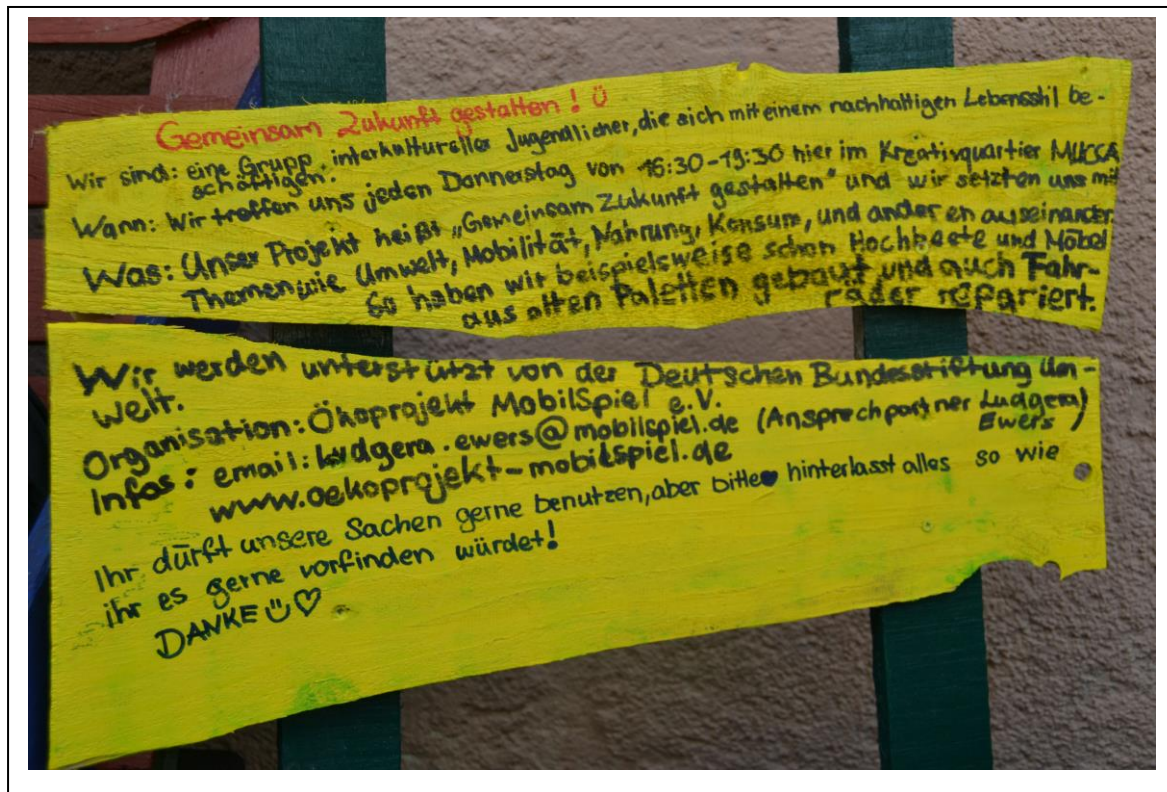 Gemeinsam Zukunft gestalten! ü
Wir sind: eine Grupp interkultureller Jugendlicher, die sich mit einem nachhaltigen Lebensstil be-
schäftigen.
Wann: Wir treffen uns jeden Donnerstag von 16:30-19:30 hier im Kreativquartier MUCCA
Was: Unser Projekt heißt „Gemeinsam Zukunft gestalten" und wir setzten uns mit
Themen wie Umwelt, Mobilität, Nahrung, Konsum, und anderen auseinander.
So haben wir beispielsweise schon Hochbeete und Möbel
aus alten Paletten gebaut und auch Fahr-
räder repariert.
Wir werden unterstützt von der Deutschen Bundesstiftung Um-
welt.
Organisation: Ökoprojekt MobilSpiel e.V.
Infos: email: ludgera.ewers@mobilspiel.de (Ansprechpartner Ludgera
Ewers)
www.oekoprojekt-mobilspiel.de
Ihr dürft unsere Sachen gerne benutzen, aber bitte hinterlasst alles so wie
ihr es gerne vorfinden würdet!
DANKE ü ♡